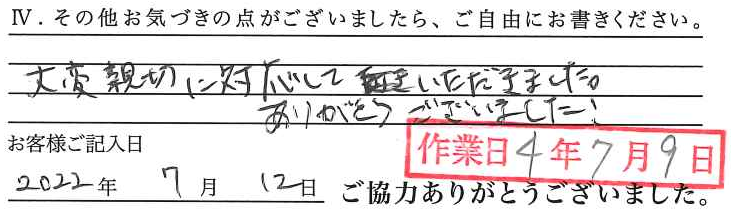 Ⅳ．その他お気づきの点がございましたら、ご自由にお書きください。
大変親切に対応していただきました。
ありがとうございました！
お客様ご記入日
作業日4年7月9日
2022年 7月 12日 ご協力ありがとうございました。